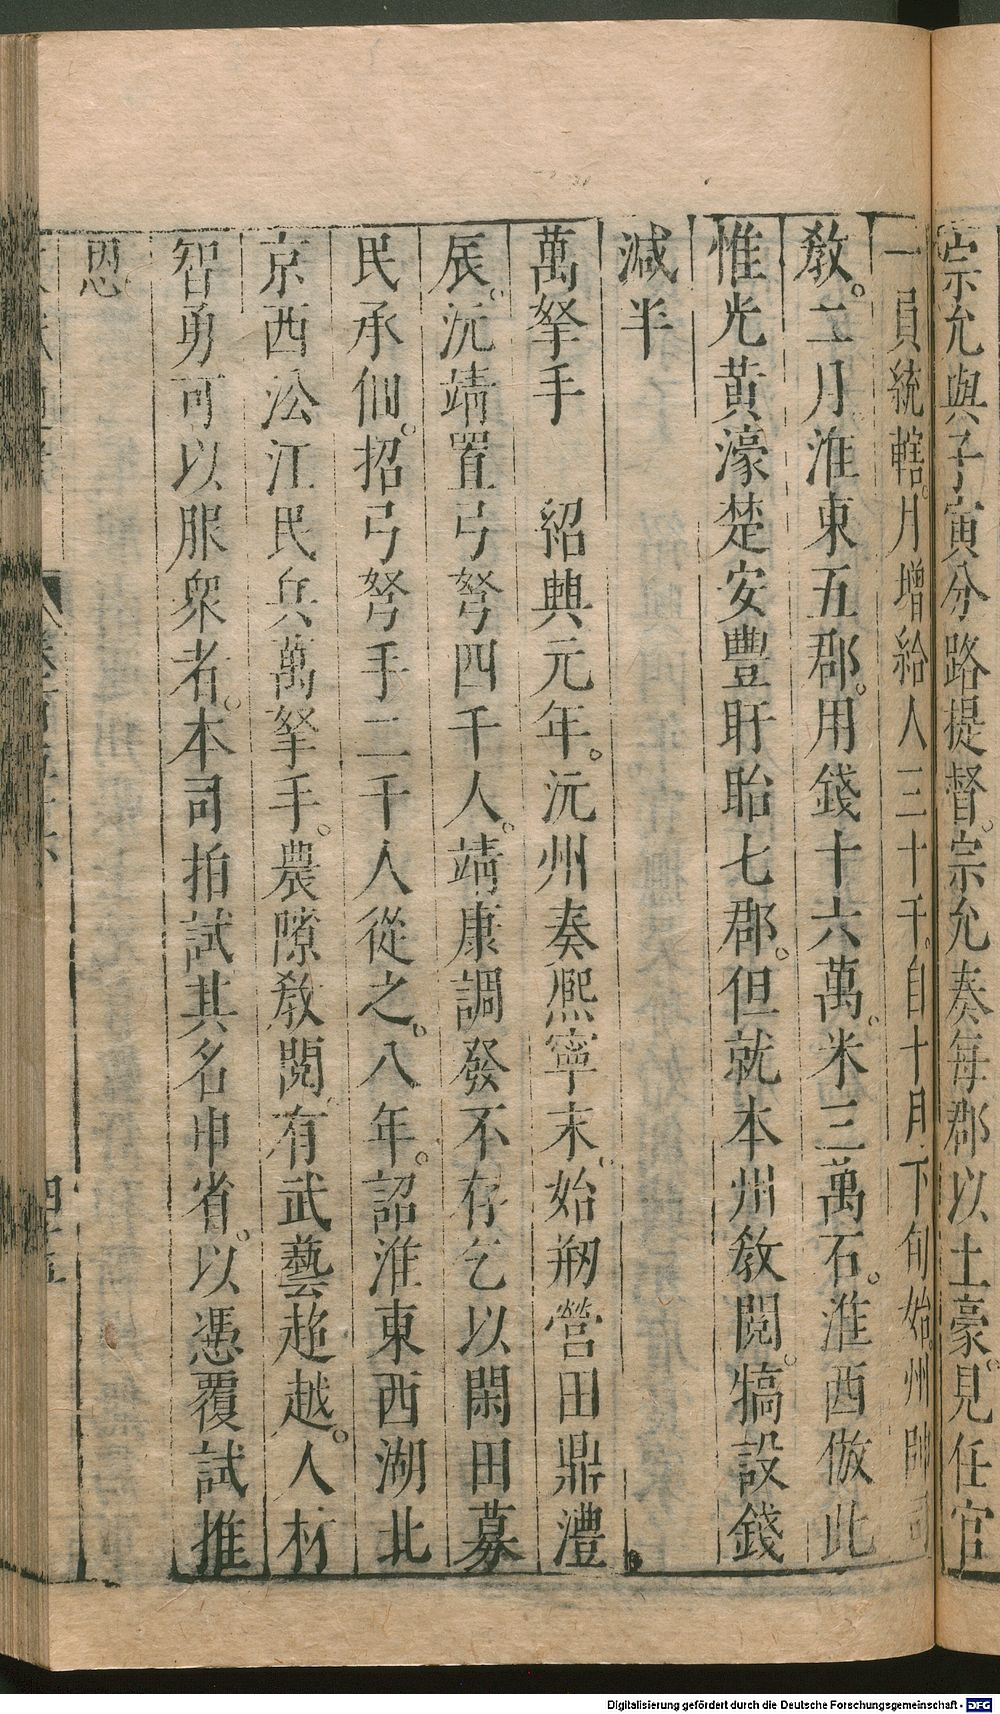 宗允與子寅分路提督。宗允奏每郡以土豪見任官
一員統轄。月增給人三十千。自十月下旬始。州帥司
教。二月淮東五郡。用錢十六萬。米三萬石。淮西倣此
惟光黃濠楚安豐盱眙七郡。但就本州教閱。犒設錢
減半
萬拏手　紹興元年。沅州奏熈寧末。始剏營田鼎澧
辰。沅靖置弓弩四千人。靖康調發不存乞以閑田募
民承佃。招弓弩手二千人從之。八年。詔淮東西湖北
京西㳂江民兵萬拏手。農隙教閱。有武藝趫越。人材
智勇可以服衆者。本司拍試其名申省。以憑覆試推
恩
四十五
Digitalisierung gefördert durch die Deutsche Forschungsgemeinschaft - DFG